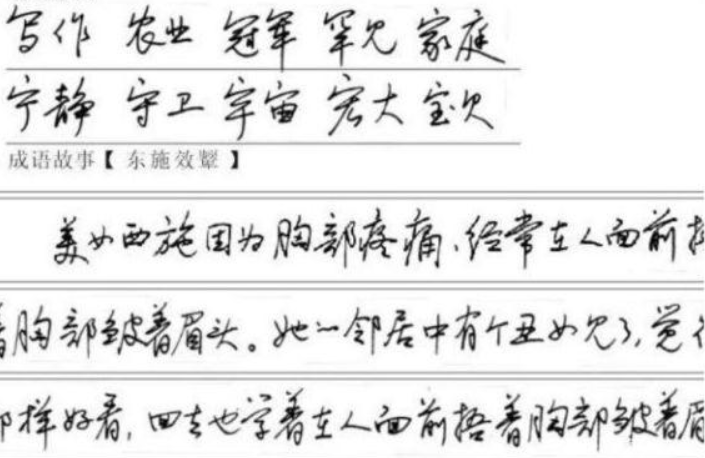 写作 农业 冠军 罕见 家庭
宁静 守卫 宇宙 宏大 宝贝
成语故事【 东施效颦 】
美女西施因为胸部疼痛、经常在人面前捂
着胸部皱着眉头。她的邻居中有个丑女见了,觉得
那样好看,回去也学着在人面前捂着胸部皱着眉